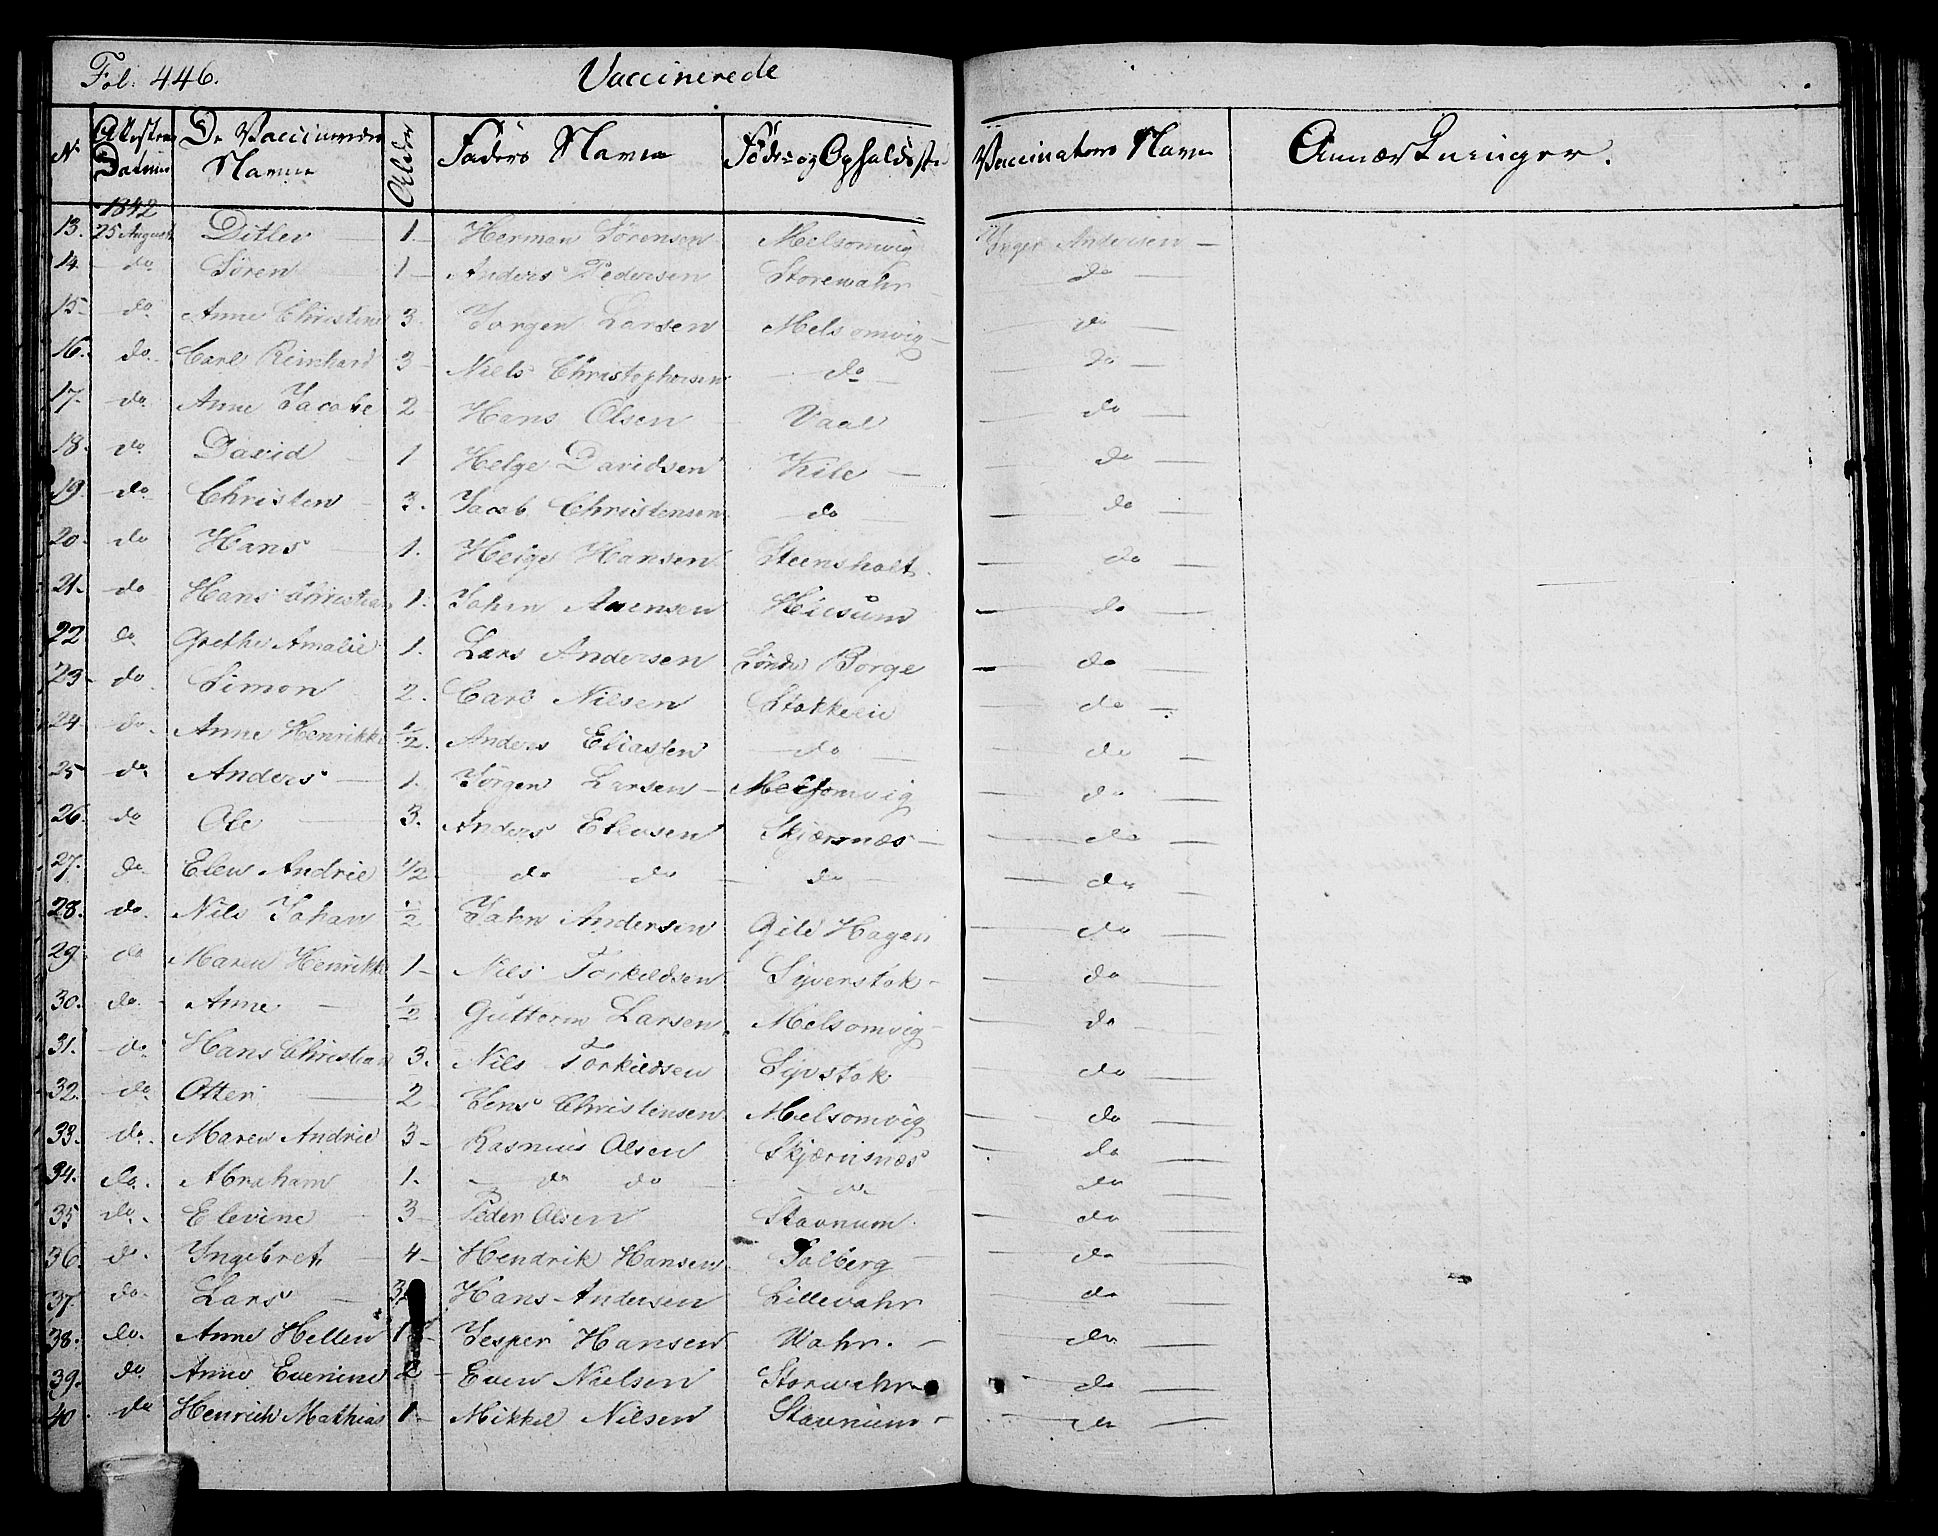 Fol. 446. Vaccinerede
N Attestens Datum De Vaccineredes Navne Alder Faders Navn Føde- og Opholdsste Vaccinators Navn Anmærkninger.
1842
13. 25 August Ditlev 1. Herman Sørensen Melsomvig Inger Andersen
14 do Søren 1 Anders Pedersen Storewahr do
15 do Anne Christine 3. Jørgen Larsen Melsomvig do
16. do. Carl Reinhard 3 Niels Christophersen do do
17. do. Anne Jacobe 2 Hans Olsen Vaal do
18. do. David 1 Helge Davidsen Kile do
19. do. Christen 3. Jacob Christensen do do
20. do Hans 1. Helge Hansen Steensholt. do
21. do Hans Christian 1. John Hiesum do
22 do Grethe Amalie 1. Lars Andersen Borge do
23 do. Simon 2. Carl Nilsen Stokkerie do
24. do. Anne Henrikke 1/2. Anders Eliassen do do
25 do. Anders 1. Jørgen Larsen Melsomvig do
26. do Ole 3. Anders Elevsen Skjærsnæs do
27. do. Elen Andrie 1/2 do do do do
28. do. Nils Johan 1/2 John Andersen Gile Hagen do
29. do Maren Henrikke 1 Nils Torkildsen Syverstok do
30. do. Anne 1/2 Gutterm Larsen Melsomvig do
31. do. Hans Christian 3. Nils Torkildsen Syvstok do
32. do. Otter 2 Jens Christensen Melsomvig do
33. do. Maren Andrie 3 Rasmus Olsen Skjærnsnæs do
34. do. Abraham 1. do do do do
35 do. Elevine 3 Peder Olsen Stavnum. do
36. do. Yngebret 4 Hendrik Hansen Solberg do
37. do. Lars 3 Hans Andersen Lillevahr do
38. do. Anne Hellen 1 Jesper Hansen Wahr. do
39. do Anne Evenine 2 Even Nielsen Storwahr do
40. do Henrich Mathias 1. Mikkel Nilsen Stavnum do